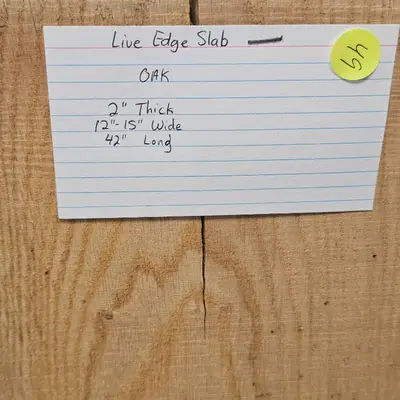 Live Edge Slab
OAK
2" Thick
12"-15" Wide
42" Long